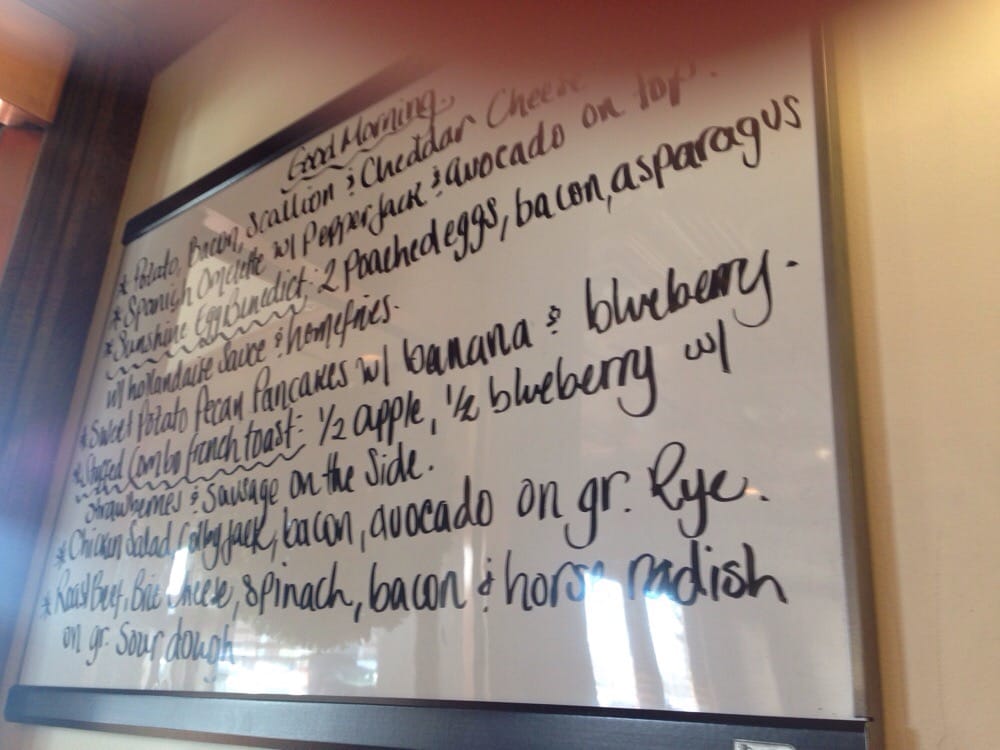 Good Morning
* Potato, Bacon, Scallion & Cheddar Cheese
* Spanish Omelette w/ Pepper Jack & avocado on top.
* Sunshine Egg Benedict: 2 Poached eggs, bacon, asparagus
w/ hollandaise sauce & homefries.
* Sweet Potato Pecan Pancakes w/ banana & blueberry.
* Stuffed Combo french toast: 1/2 apple, 1/2 blueberry w/
strawberries & Sausage on the Side.
* Chicken Salad Colby jack, bacon, avocado on gr. Rye.
* Roast Beef, Brie Cheese, spinach, bacon & horse radish
on gr. Sour dough